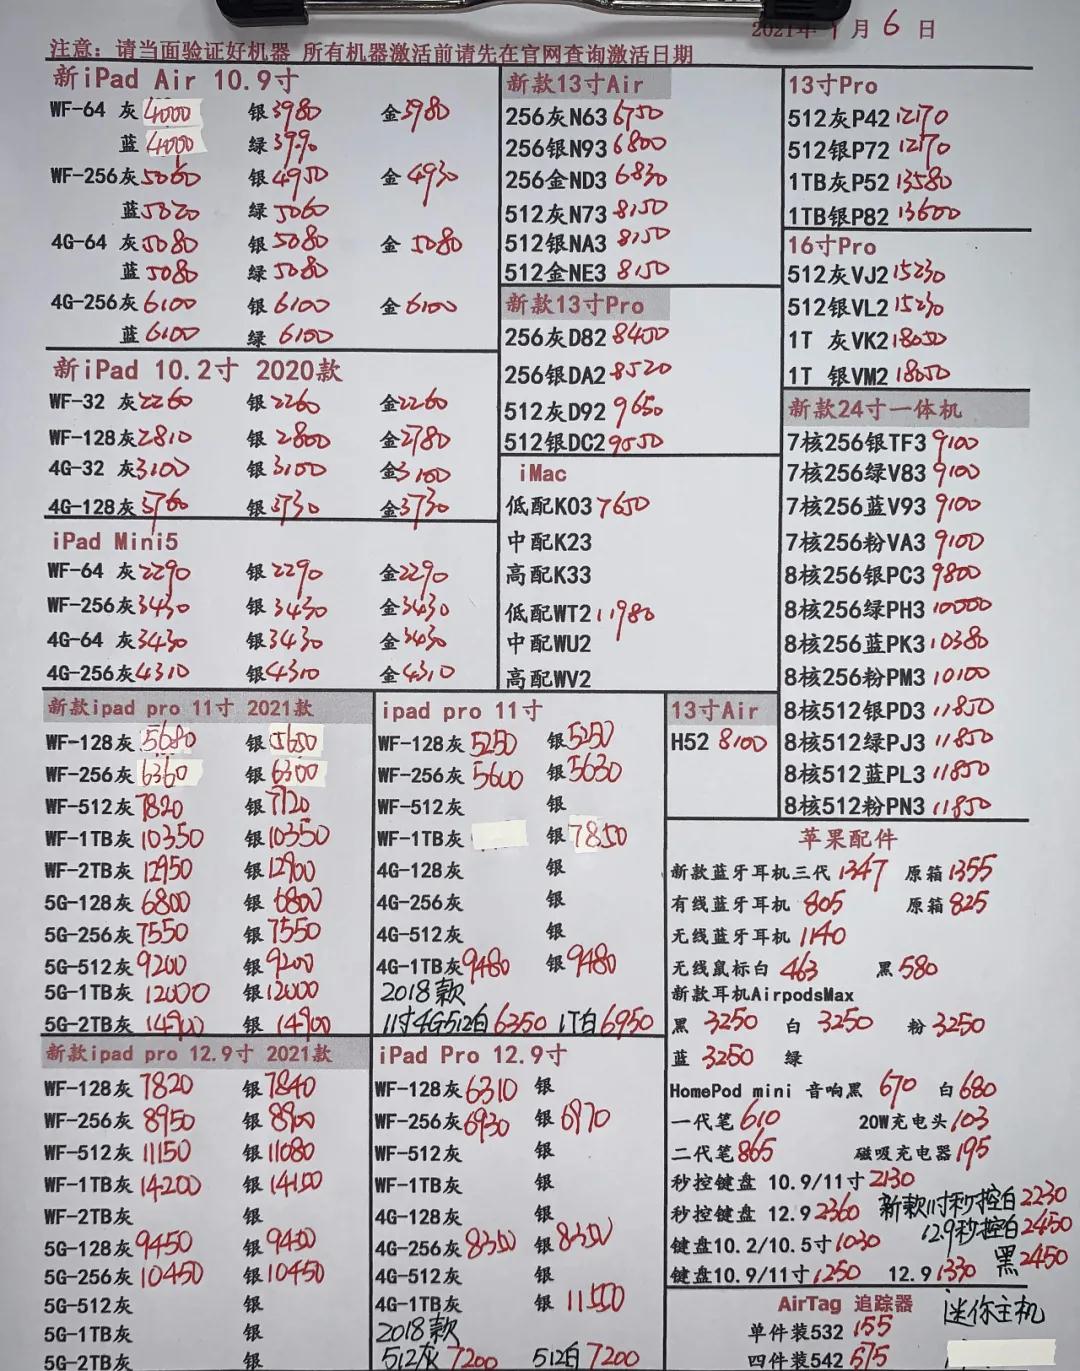 2021年 9月 6日
注意：请当面验证好机器 所有机器激活前请先在官网查询激活日期
新iPad Air 10.9寸
WF-64 灰4000 银3980 金3980
蓝4000 绿3990
WF-256灰5060 银4950 金4930
蓝5020 绿5060
4G-64 灰5080 银5080 金5080
蓝5080 绿5080
4G-256灰6100 银6100 金6100
蓝6100 绿6100
新iPad 10.2寸 2020款
WF-32 灰2260 银2260 金2260
WF-128灰2810 银2800 金2780
4G-32 灰3100 银3100 金3100
4G-128灰3760 银3730 金3730
iPad Mini5
WF-64 灰2290 银2290 金2290
WF-256灰3430 银3430 金3430
4G-64 灰3430 银3430 金3430
4G-256灰4310 银4310 金4310
新款13寸Air
256灰N63 6750
256银N93 6800
256金ND3 6830
512灰N73 8150
512银NA3 8150
512金NE3 8150
新款13寸Pro
256灰D82 8450
256银DA2 8520
512灰D92 9650
512银DC2 9550
iMac
低配K03 7650
中配K23
高配K33
低配WT2 11980
中配WU2
高配WV2
13寸Pro
512灰P42 12170
512银P72 12170
1TB灰P52 13580
1TB银P82 13600
16寸Pro
512灰VJ2 15230
512银VL2 15230
1T 灰VK2 18050
1T 银VM2 18050
新款24寸一体机
7核256银TF3 9100
7核256绿V83 9100
7核256蓝V93 9100
7核256粉VA3 9100
8核256银PC3 9800
8核256绿PH3 10000
8核256蓝PK3 10380
8核256粉PM3 10100
8核512银PD3 11850
8核512绿PJ3 11850
8核512蓝PL3 11850
8核512粉PN3 11850
新款ipad pro 11寸 2021款
WF-128灰5680 银5650
WF-256灰6360 银6300
WF-512灰7820 银7720
WF-1TB灰10350 银10350
WF-2TB灰12950 银12900
5G-128灰6800 银6800
5G-256灰7550 银7550
5G-512灰9200 银9200
5G-1TB灰12000 银12000
5G-2TB灰14900 银14900
ipad pro 11寸
WF-128灰5250 银5250
WF-256灰5600 银5630
WF-512灰 银
WF-1TB灰 银7850
4G-128灰 银
4G-256灰 银
4G-512灰 银
4G-1TB灰9480 银9480
2018款
11寸4G512白6350 1T白6950
13寸Air
H52 8100
新款ipad pro 12.9寸 2021款
WF-128灰7820 银7840
WF-256灰8950 银8900
WF-512灰11150 银11080
WF-1TB灰14200 银14100
WF-2TB灰 银
5G-128灰9450 银9400
5G-256灰10450 银10450
5G-512灰 银
5G-1TB灰 银
5G-2TB灰 银
iPad Pro 12.9寸
WF-128灰6310 银
WF-256灰6930 银6970
WF-512灰 银
WF-1TB灰 银
4G-128灰 银
4G-256灰8350 银8350
4G-512灰 银
4G-1TB灰 银11550
2018款
512灰7200 512白7200
苹果配件
新款蓝牙耳机三代1347 原箱1355
有线蓝牙耳机 805 原箱825
无线蓝牙耳机 1140
无线鼠标白 463 黑580
新款耳机AirpodsMax
黑 3250 白 3250 粉 3250
蓝 3250 绿
HomePod mini 音响黑 670 白680
一代笔610 20W充电头103
二代笔865 磁吸充电器195
秒控键盘 10.9/11寸2130 新款11寸秒控白2230
秒控键盘 12.9 2360 12.9秒控白2450
键盘10.2/10.5寸1030 黑2450
键盘10.9/11寸1250 12.9 1330
AirTag 追踪器 迷你主机
单件装532 155
四件装542 575